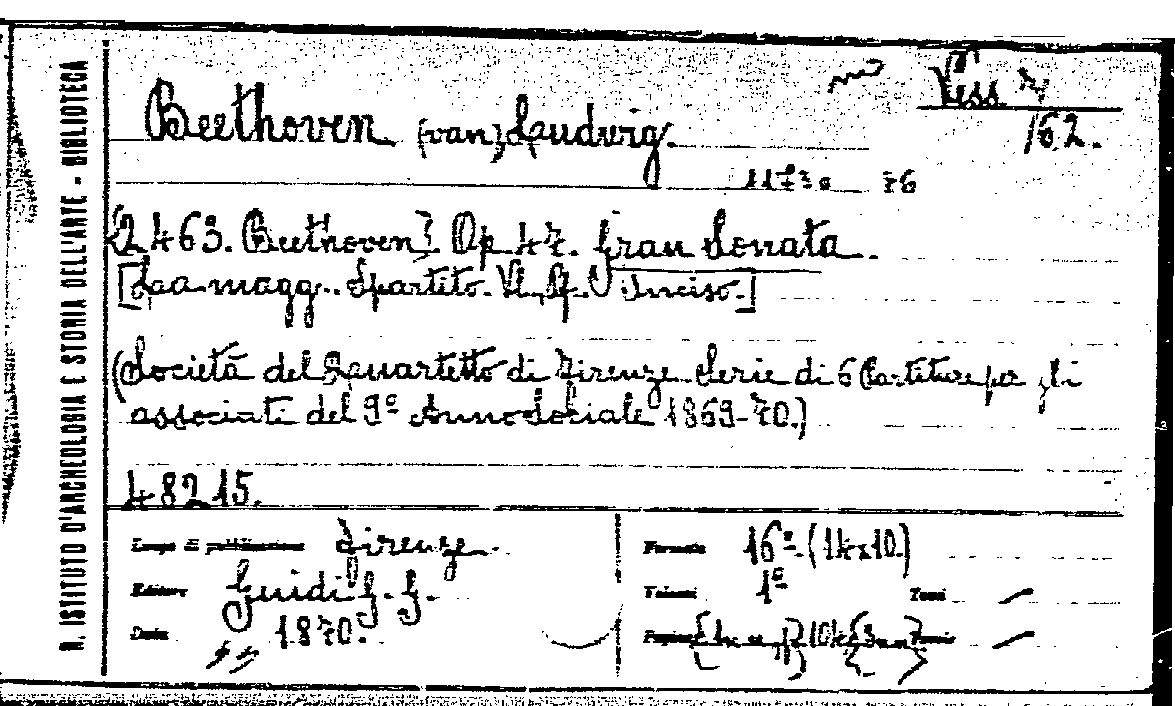 R. ISTITUTO D'ARCHEOLOGIA E STORIA DELL'ARTE - BIBLIOTECA
Vess
Beethoven (van) Ludwig.
162.
76
[2463. Beethoven] Op. 47. Gran Sonata.
[La magg.. Spartito. Vl., Pf. Inciso.]
(Società del Quartetto di Firenze. Serie di 6 Partiture per gli
associati del 9º Anno Sociale 1869-70.)
48215.
Luogo di pubblicazione Firenze.
Formato 16º (14x10)
Editore Guidi G. G.
Volumi 1º Tomi
Data 1870.
Pagine